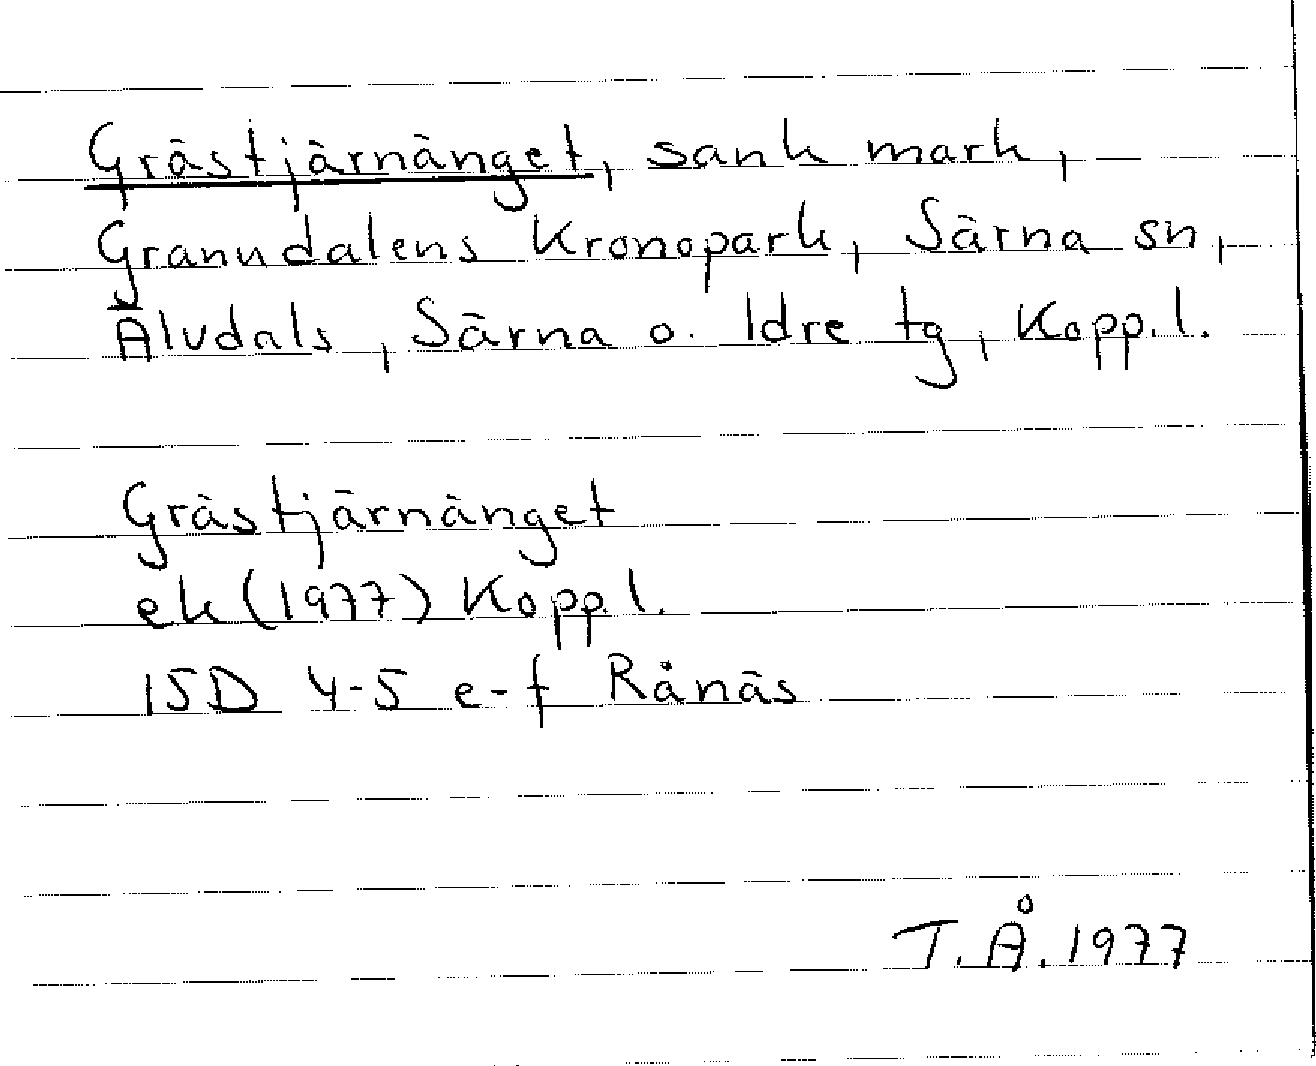 Grästjärnänget, sank mark,
Granudalens Kronopark, Särna sn,
Älvdals, Särna o. Idre tg, Kopp.l.
Grästjärnänget
ek (1977) Kopp.l.
15D 4-5 e-f Rånäs
T.Å. 1977